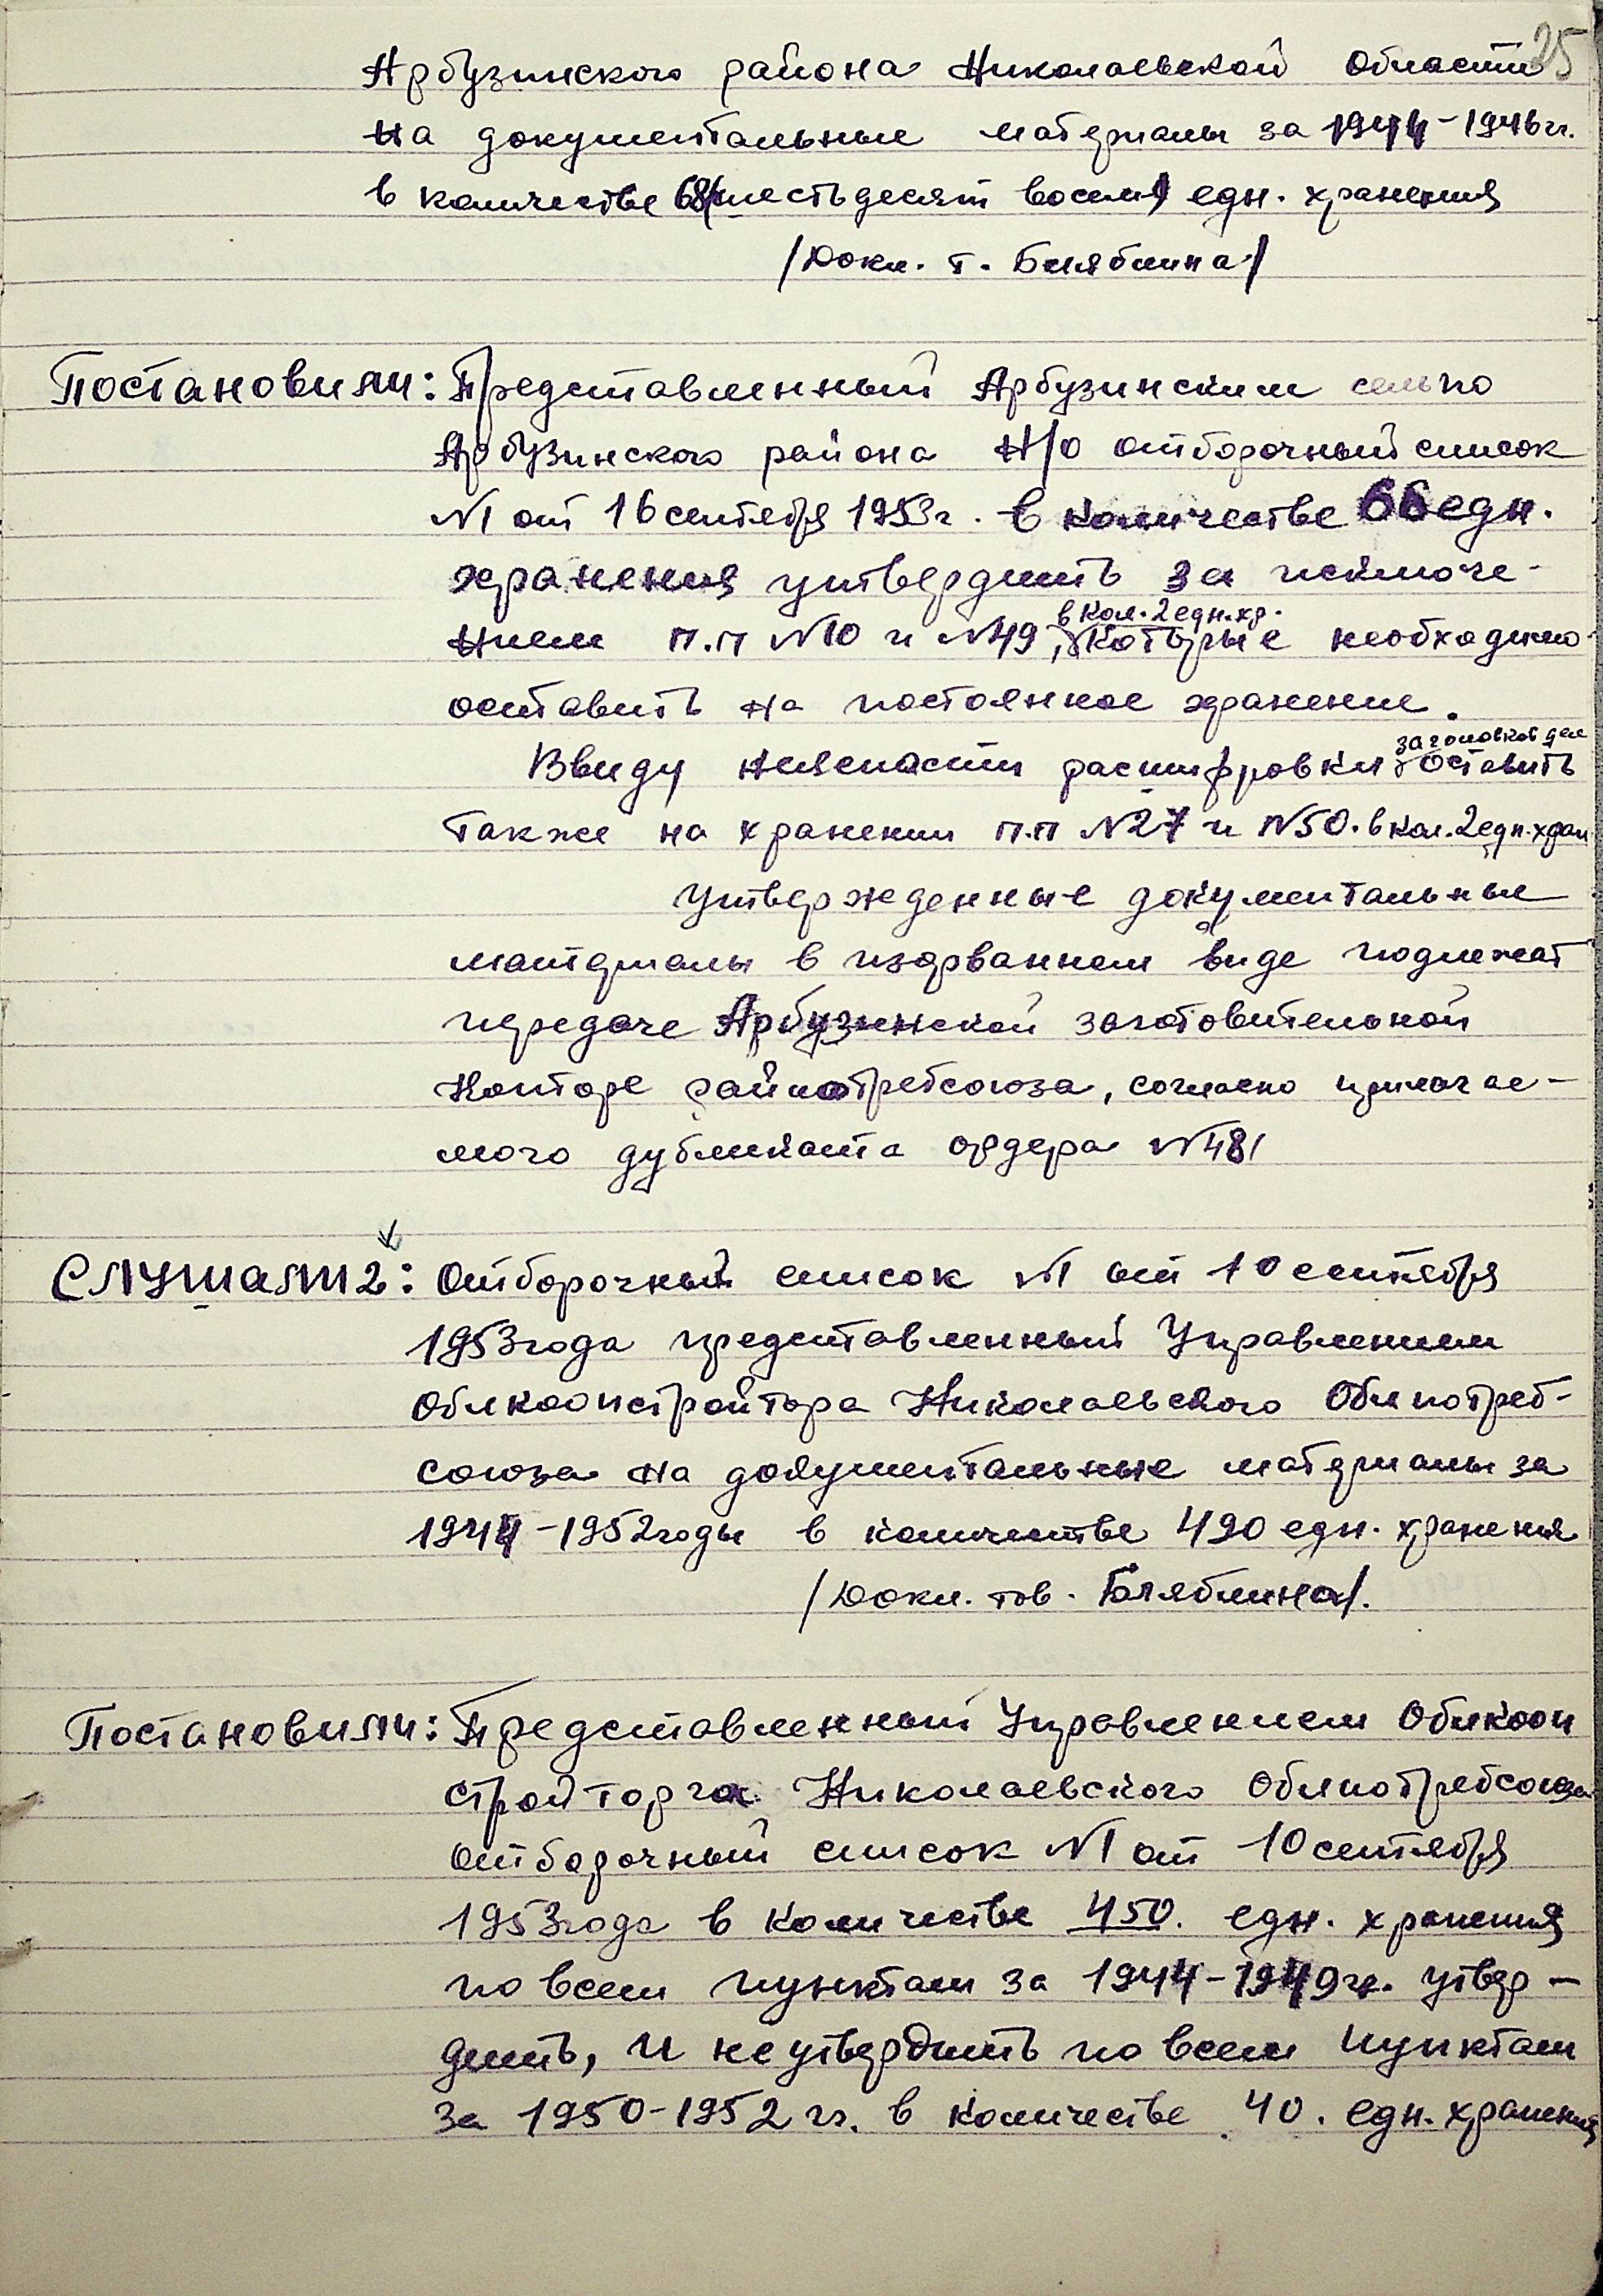 35
Арбузинского района Николаевской области
на документальные материалы за 1944-1946 гг.
в количестве 68/шестьдесят восемь/ едн. хранения
/Докл. т. Биляблина/
Постановили: Представленный Арбузинским сельпо
Арбузинского района Н/о отборочный список
N1 от 16 сентября 1953 г. в количестве 66 едн.
хранения утвердить за исключе-
нием п.п N10 и N49, которые необходимо
в кол. 2 едн. хр.
оставить на постоянное хранение.
Ввиду неясности расшифровки оставить
заголовков дел
также на хранении п.п N27 и N50. в кол. 2 едн. хран
Утвержденные документальные
материалы в изорванном виде подлежат
передаче Арбузинской заготовительной
конторе райпотребсоюза, согласно прилагае-
мого дубликата ордера N481
Слушали 2: Отборочный список N1 от 10 сентября
1953 года представленный Управлением
Облкоопстройторга Николаевского Облпотреб-
союза на документальные материалы за
1944-1952 годы в количестве 490 едн. хранения
/Докл. тов. Биляблина/.
Постановили: Представленный Управлением Облкооп
стройторга Николаевского Облпотребсоюза
отборочный список N1 от 10 сентября
1953 года в количестве 450. едн. хранения
по всем пунктам за 1944-1949 гг. утвер-
дить, и не утвердить по всем пунктам
за 1950-1952 гг. в количестве 40. едн. хранения